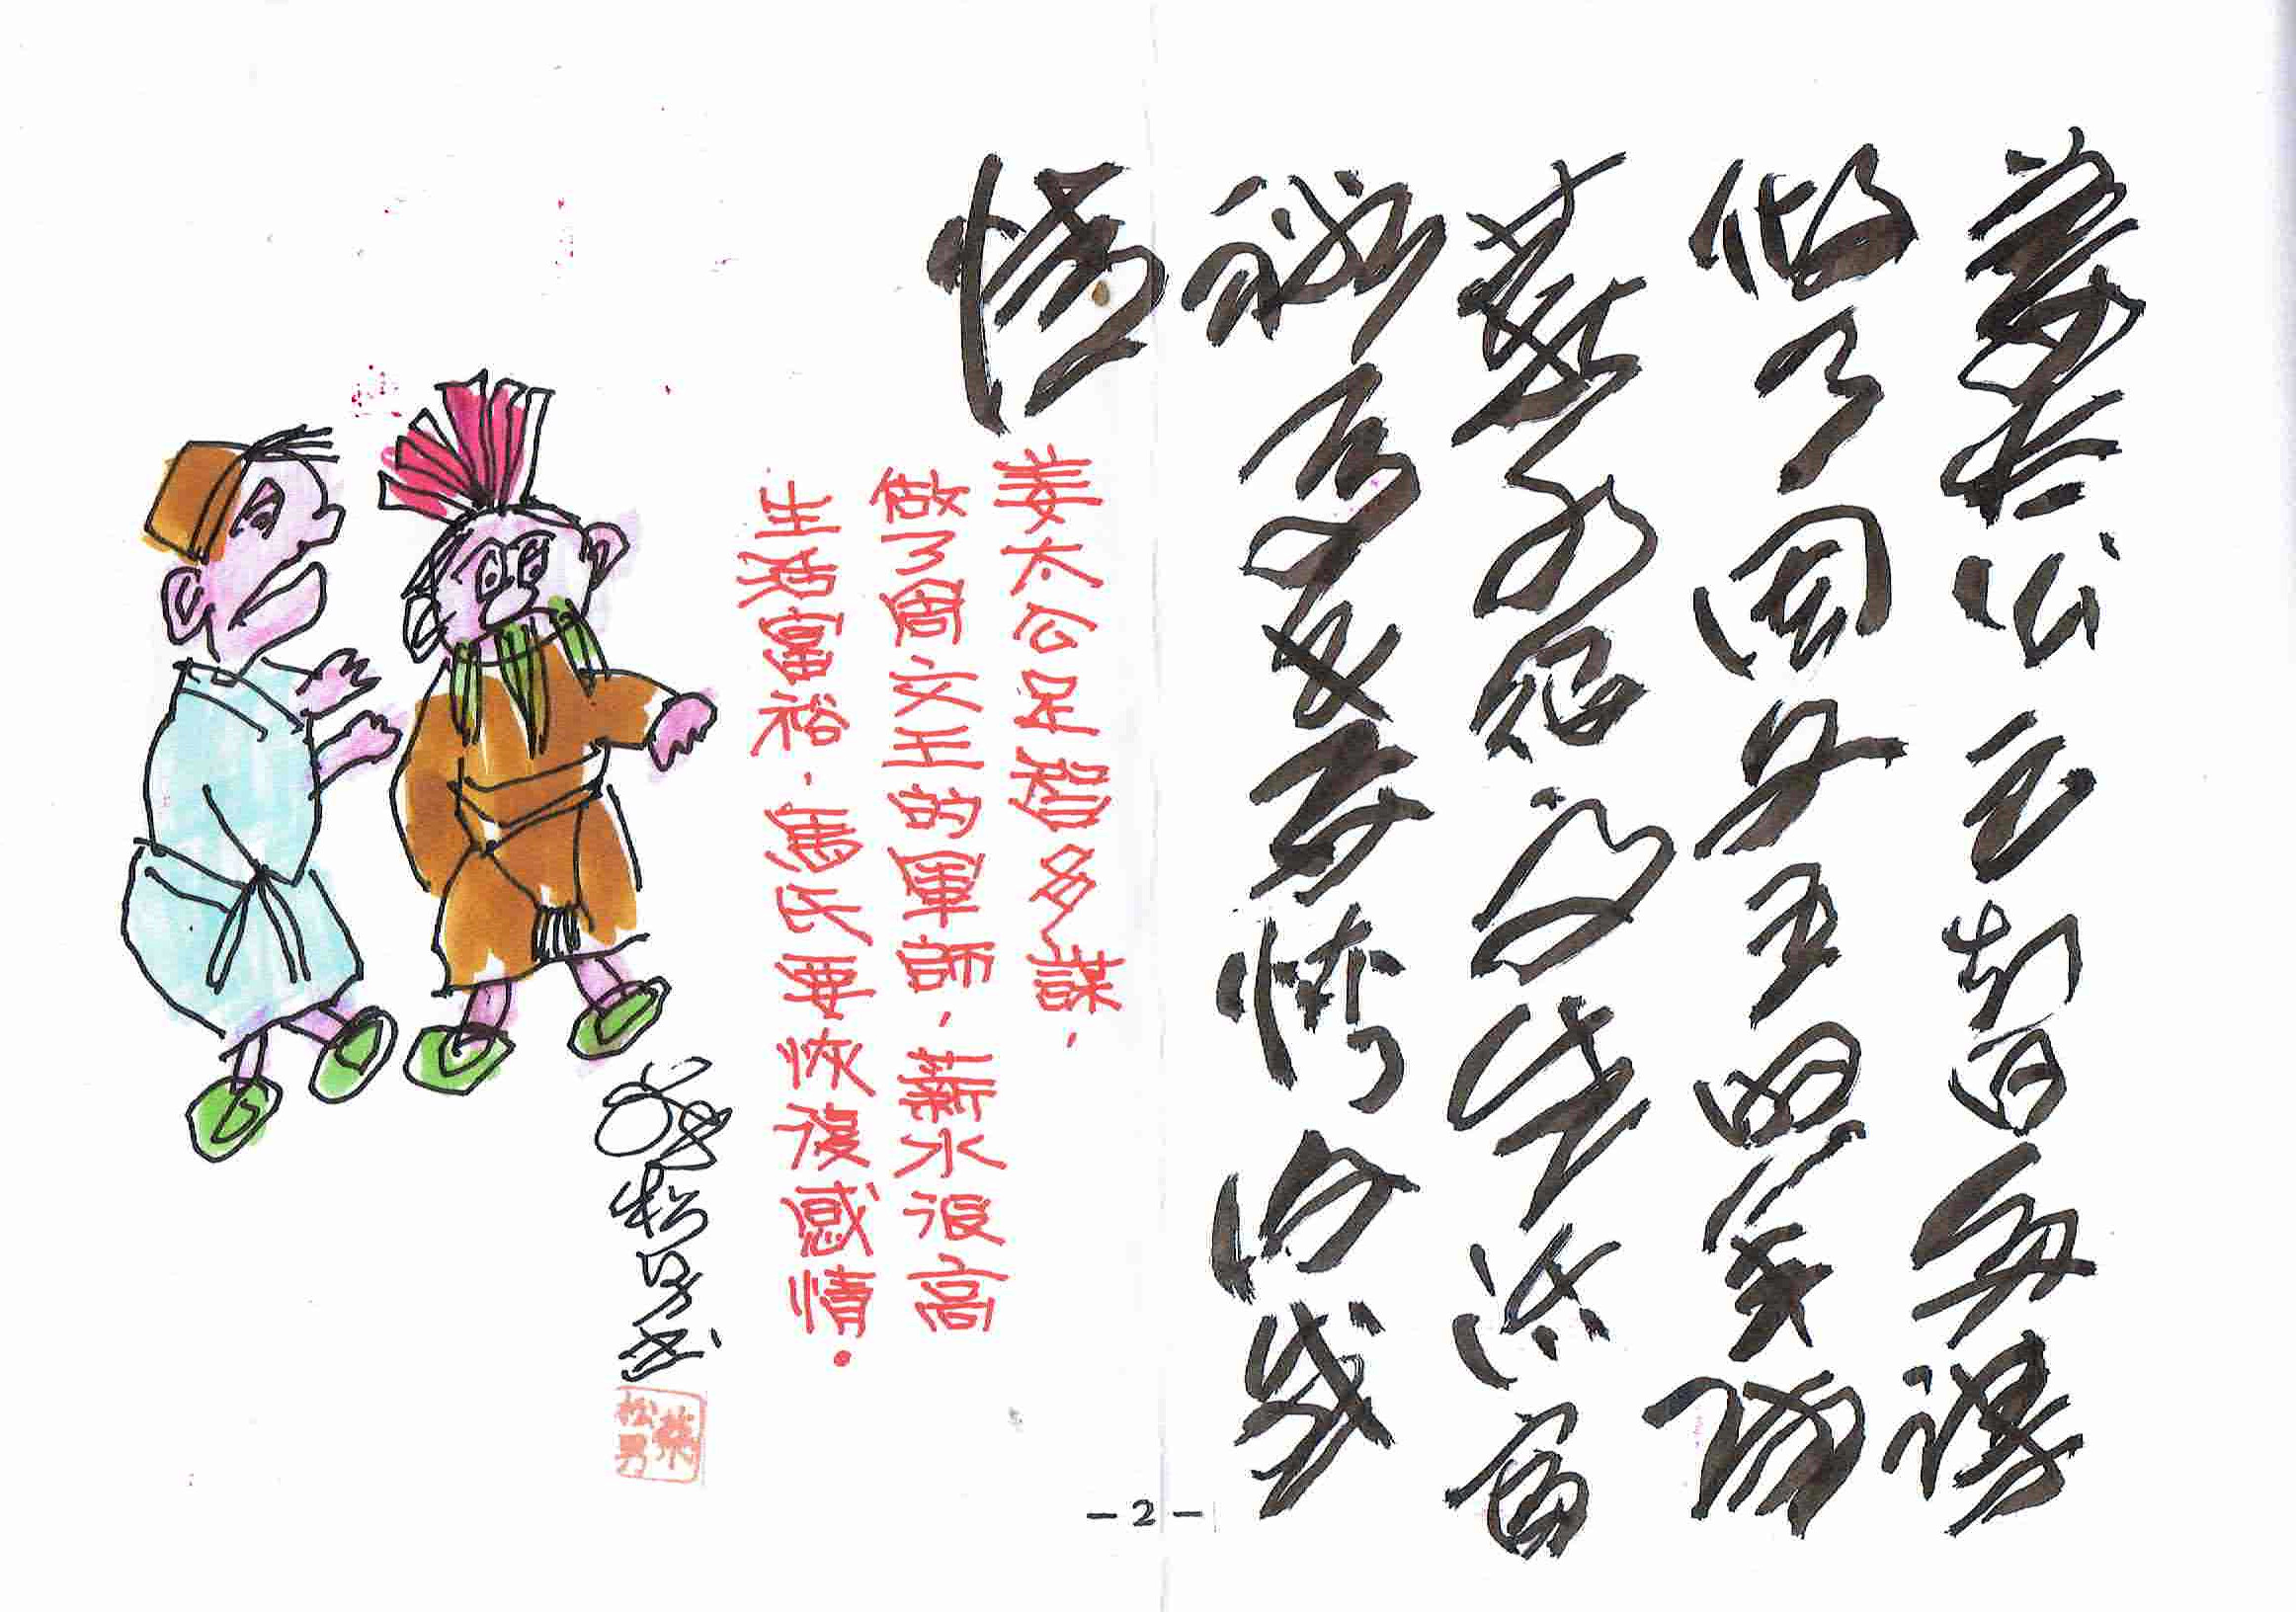 姜太公足智多謀
做了周文王的軍師
薪水很高生活富
裕馬氏要恢復感
情
姜太公足智多謀，
做了周文王的軍師，薪水很高
生活富裕．馬氏要恢復感情．
葉松男書
葉
松男
－2－